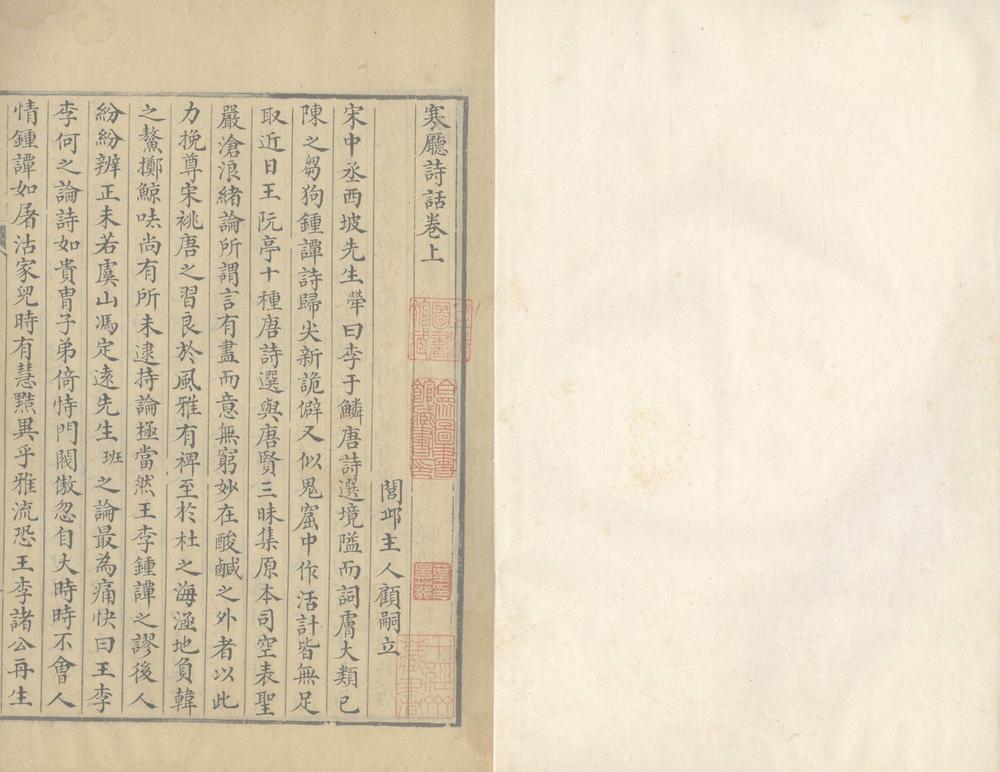 寒廳詩話卷上
閭邱主人顧嗣立
宋中丞西坡先生犖曰李于鱗唐詩選境隘而詞膚大類已
陳之芻狗鍾譚詩歸尖新詭僻又似鬼窟中作活計皆無足
取近日王阮亭十種唐詩選與唐賢三昧集原本司空表聖
嚴滄浪緒論所謂言有盡而意無窮妙在酸鹹之外者以此
力挽尊宋祧唐之習良於風雅有裨至於杜之海涵地負韓
之鰲擲鯨呿尚有所未逮持論極當然王李鍾譚之謬後人
紛紛辨正未若虞山馮定遠先生班之論最為痛快曰王李
李何之論詩如貴胄子弟倚恃門閥傲忽自大時時不會人
情鍾譚如屠沽家兒時有慧黠異乎雅流恐王李諸公再生